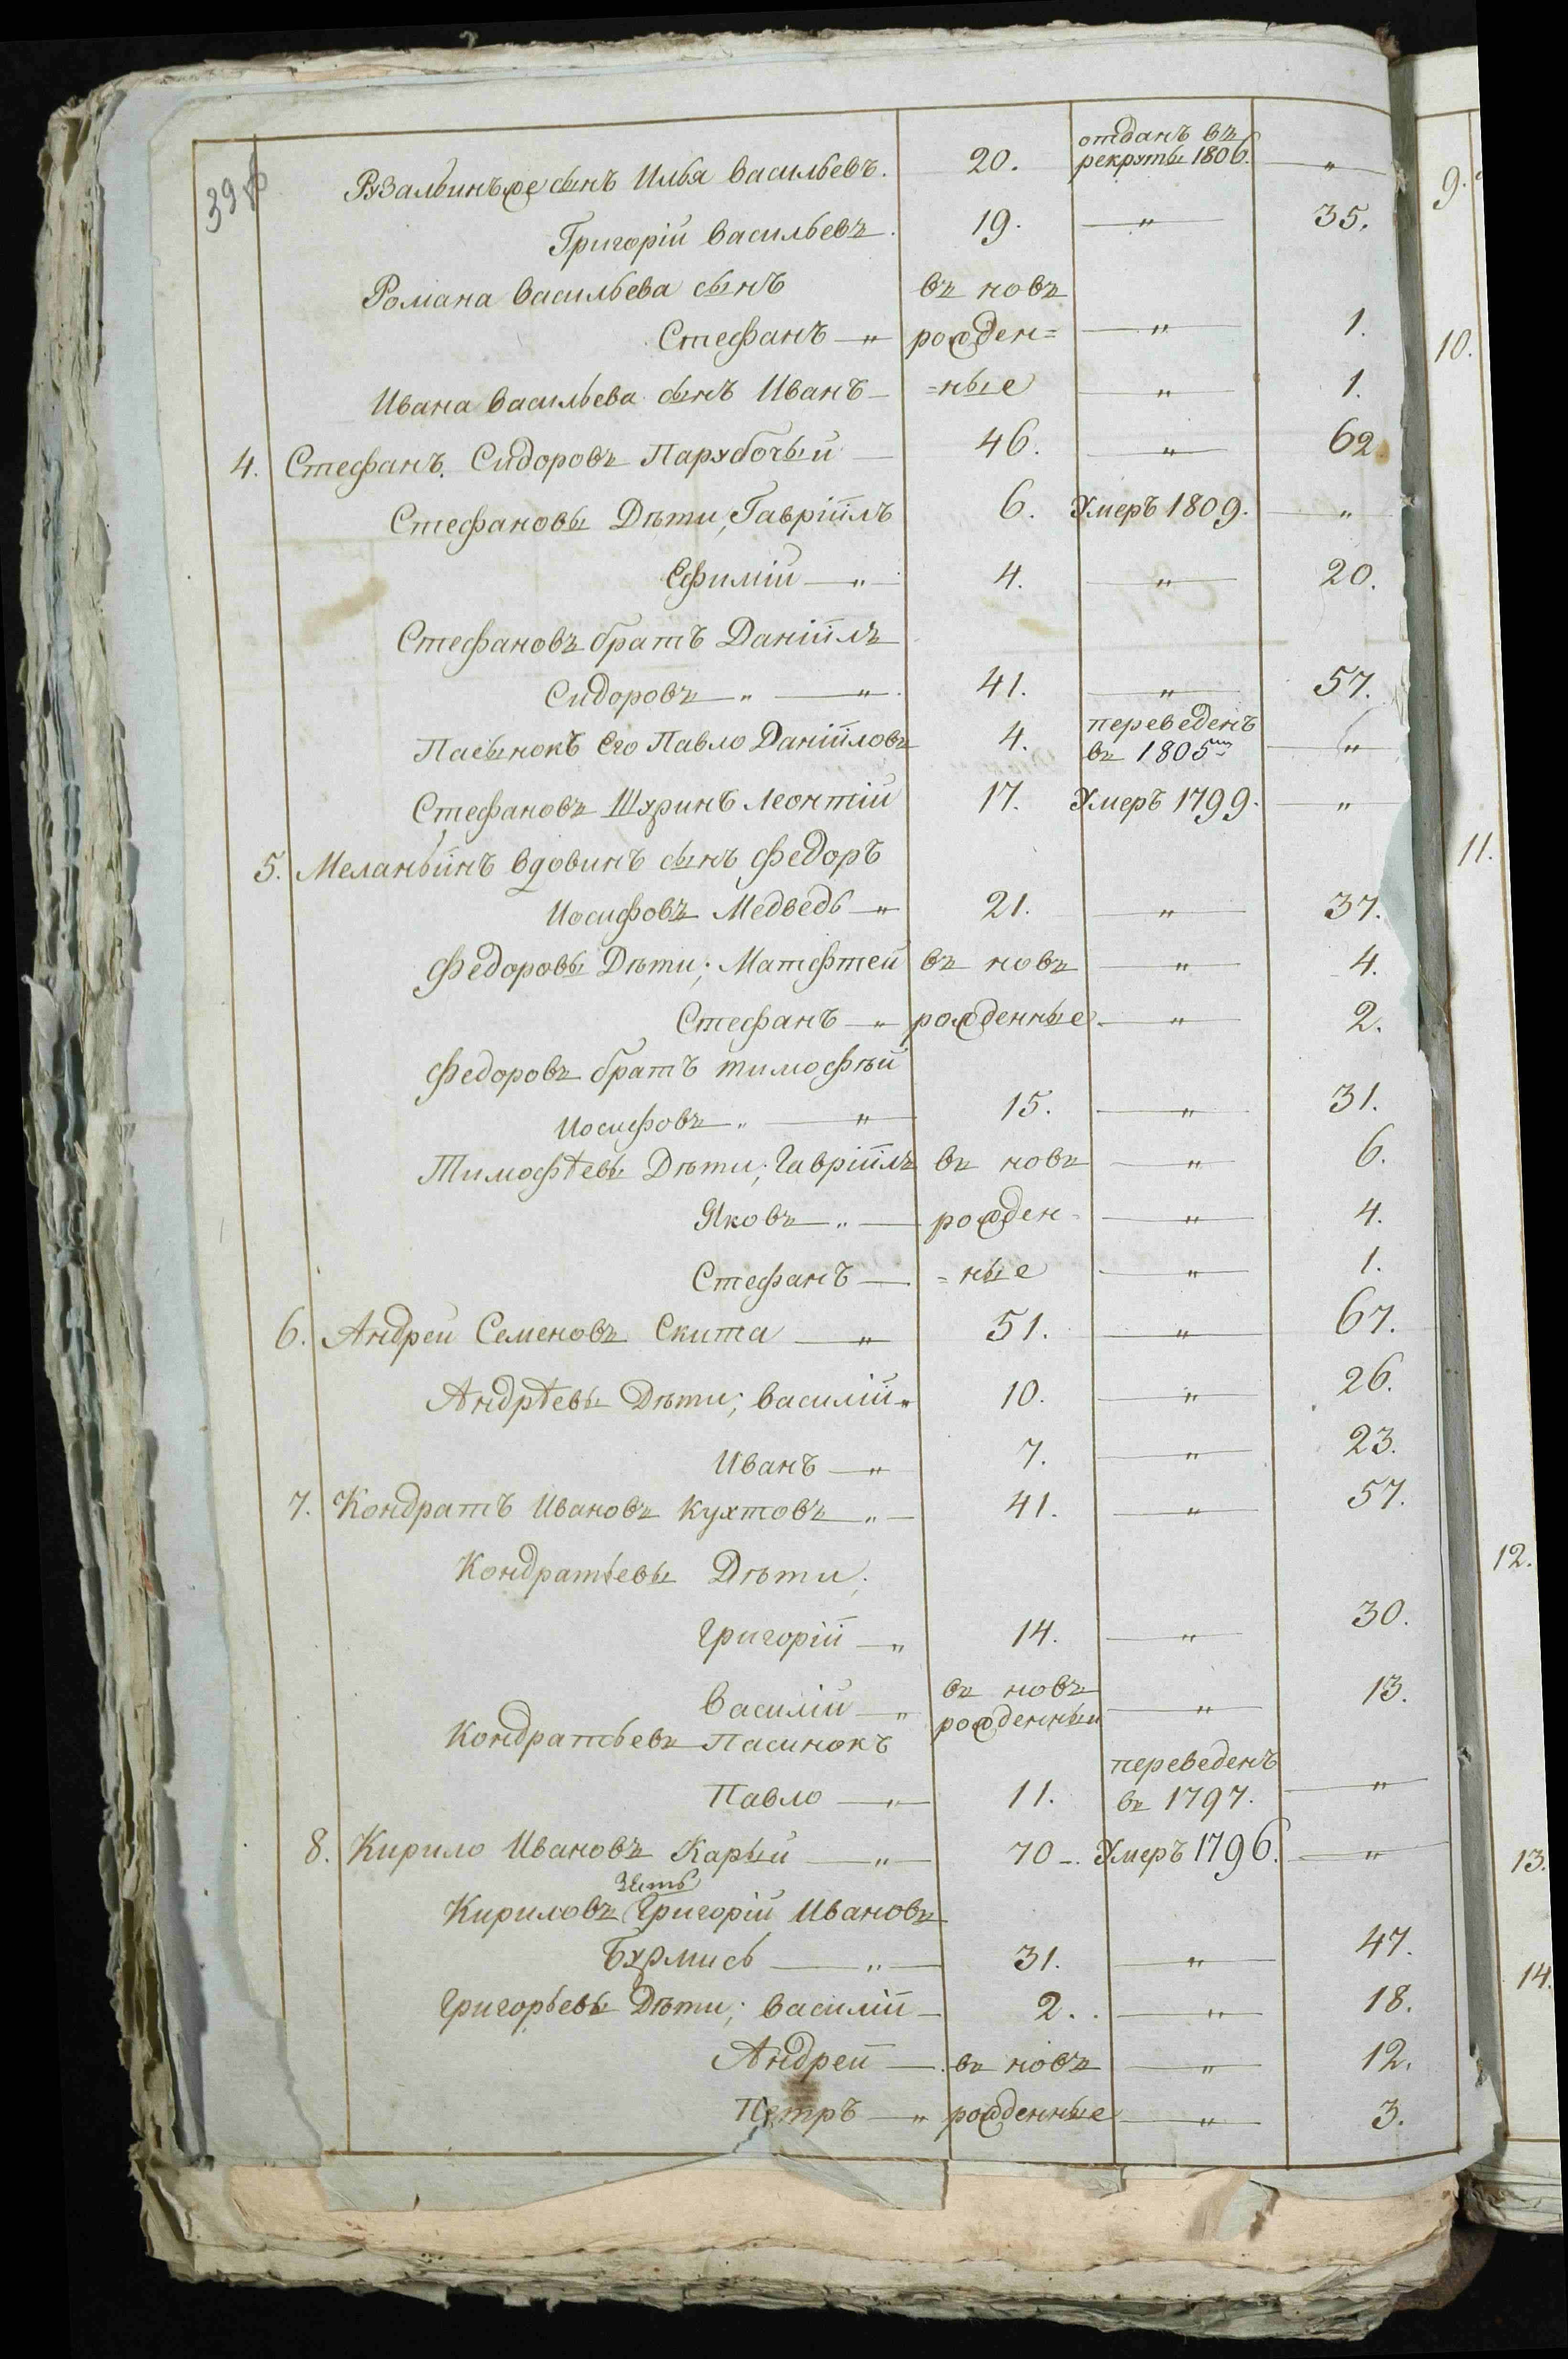 отданъ въ
Рузальинъже сынъ Илья Васильевъ. 20. рекруты 1806. — „
Григорій Васильевъ. 19. — „ — 35.
Романа Васильева сынъ въ новъ
Стефанъ — „ рожден= — „ — 1.
Ивана Васильева сынъ Иванъ — =ные — „ — 1.
4. Стефанъ Сидоровъ Парубочый — 46. — „ — 62
Стефановы Дѣти; Гавріилъ 6. Умеръ 1809. — „
Ефимій — „ — 4. — „ — 20.
Стефановъ братъ Даніилъ
Сидоровъ — „ — „ 41. — „ — 57.
переведенъ
Пасынокъ Его Павло Даніиловъ 4. въ 1805мъ — „
Стефановъ Шуринъ Леонтій 17. Умеръ 1799. — „
5. Меланьинъ вдовинъ сынъ Федоръ
Иосифовъ Медведь — „ 21. — „ — 37.
Федоровы Дѣти; Матфтей въ новъ — „ — 4.
Стефанъ — „ рожденные — „ — 2.
Федоровъ братъ тимофѣй
Иосифовъ „ — „ — 15. — „ — 31.
Тимофѣевы Дѣти; Гавріилъ въ новъ — „ — 6.
Яковъ — „ — рожден= — „ — 4.
Стефанъ — =ные — „ — 1.
6. Андрей Семеновъ Скита — „ 51. — „ — 67.
Андрѣевы Дѣти; Василій „ 10. — „ — 26.
Иванъ — „ 7. — „ — 23.
7. Кондратъ Ивановъ Кухтовъ „ — 41. — „ — 57.
Кондратьевы Дѣти;
Григорій — „ 14. — „ — 30.
въ новъ
Василій — „ рожденный — „ — 13.
Кондратьевъ Пасинокъ
переведенъ
Павло — „ — 11. въ 1797. — „
8. Кирило Ивановъ Карый — „ — 70 — Умеръ 1796. — „
Зять
Кириловъ Григорій Ивановъ
Бурмись — „ — 31. — „ — 47.
Григорьевы Дѣти; Василій — 2. — „ — 18.
Андрей — въ новъ — „ — 12.
Петръ — „ рожденные — „ — 3.
9.
10.
11.
12.
13.
14.